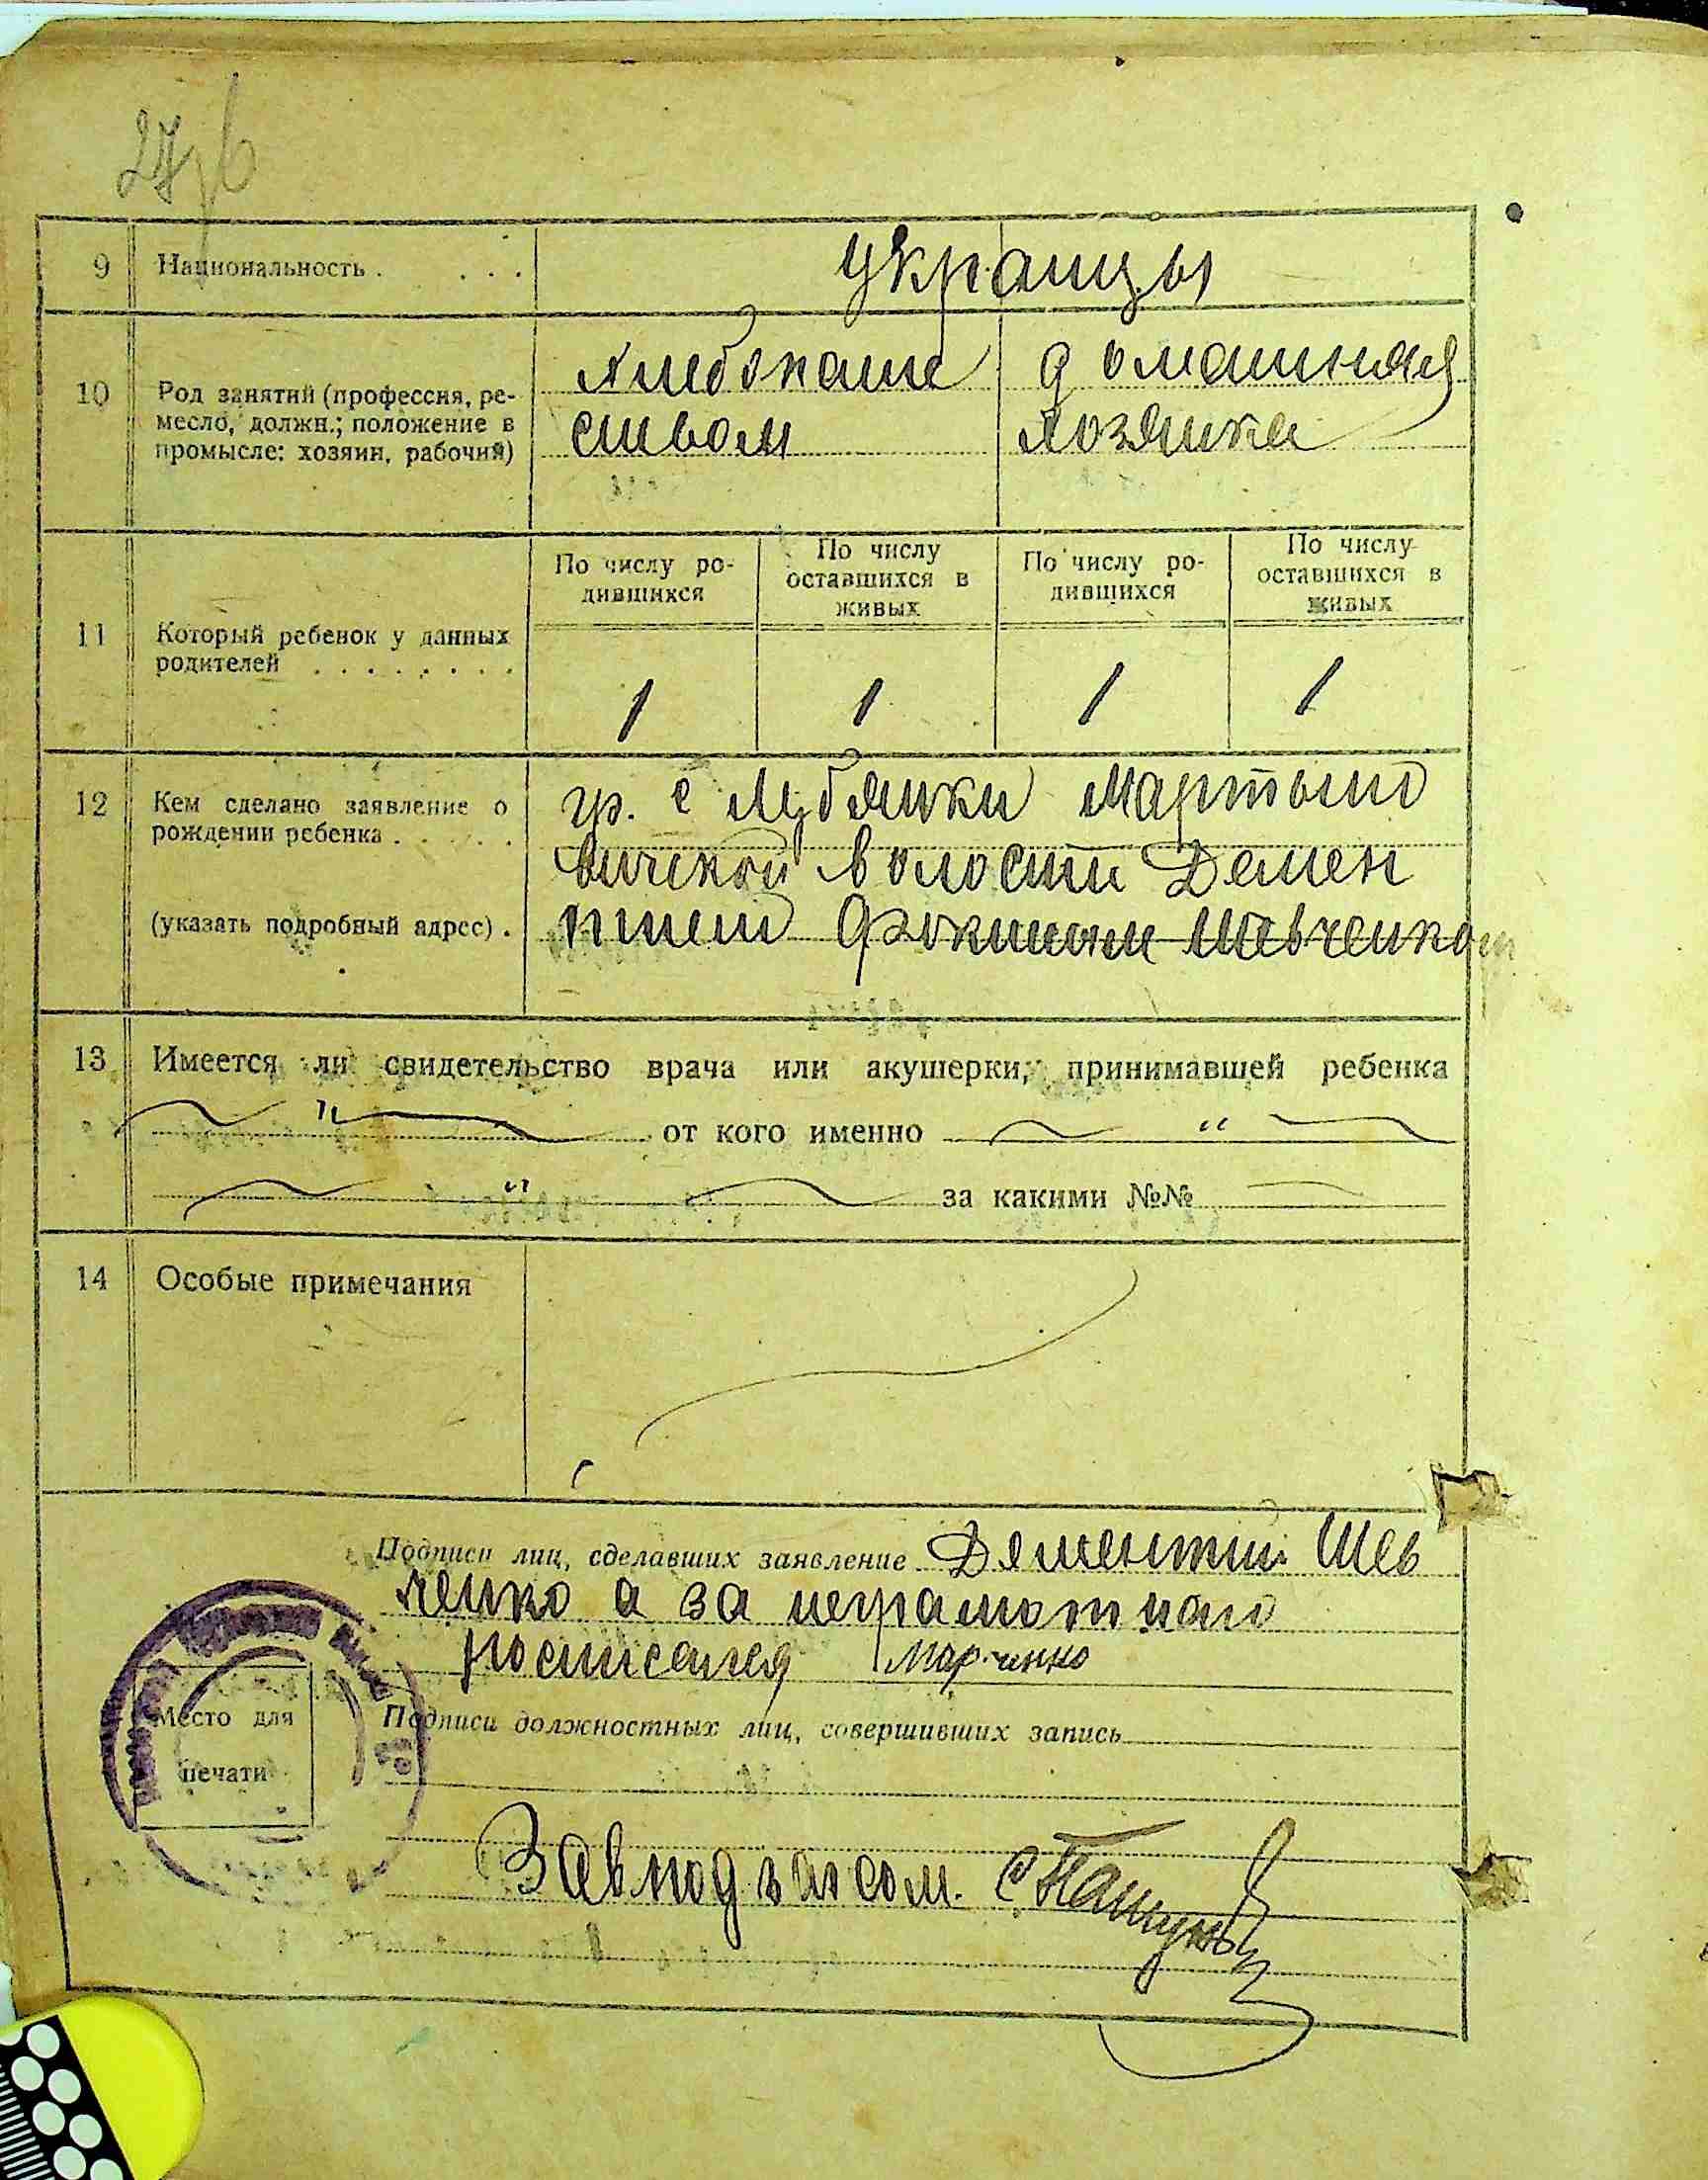 9 Национальность . . . . украинцы
10 Род занятий (профессия, ре-
месло, должн.; положение в
промысле: хозяин, рабочий)
хлебопаше
ством
домашняя
хозяйка
По числу ро-
дившихся
По числу
оставшихся в
живых
По числу ро-
дившихся
По числу
оставшихся в
живых
11 Который ребенок у данных
родителей . . . . . . . .
1 1 1 1
12 Кем сделано заявление о
рождении ребенка . . . . .
(указать подробный адрес) .
гр. с Лубянки Мартыно
вичской волости Демен
тием Фокиным Шевченком
13 Имеется ли свидетельство врача или акушерки, принимавшей ребенка
" от кого именно "
" за какими №№
14 Особые примечания
Подписи лиц, сделавших заявление Дементий Шев
ченко а за неграмотного
росписался Марченко
Место для
печати
Подписи должностных лиц, совершивших запись